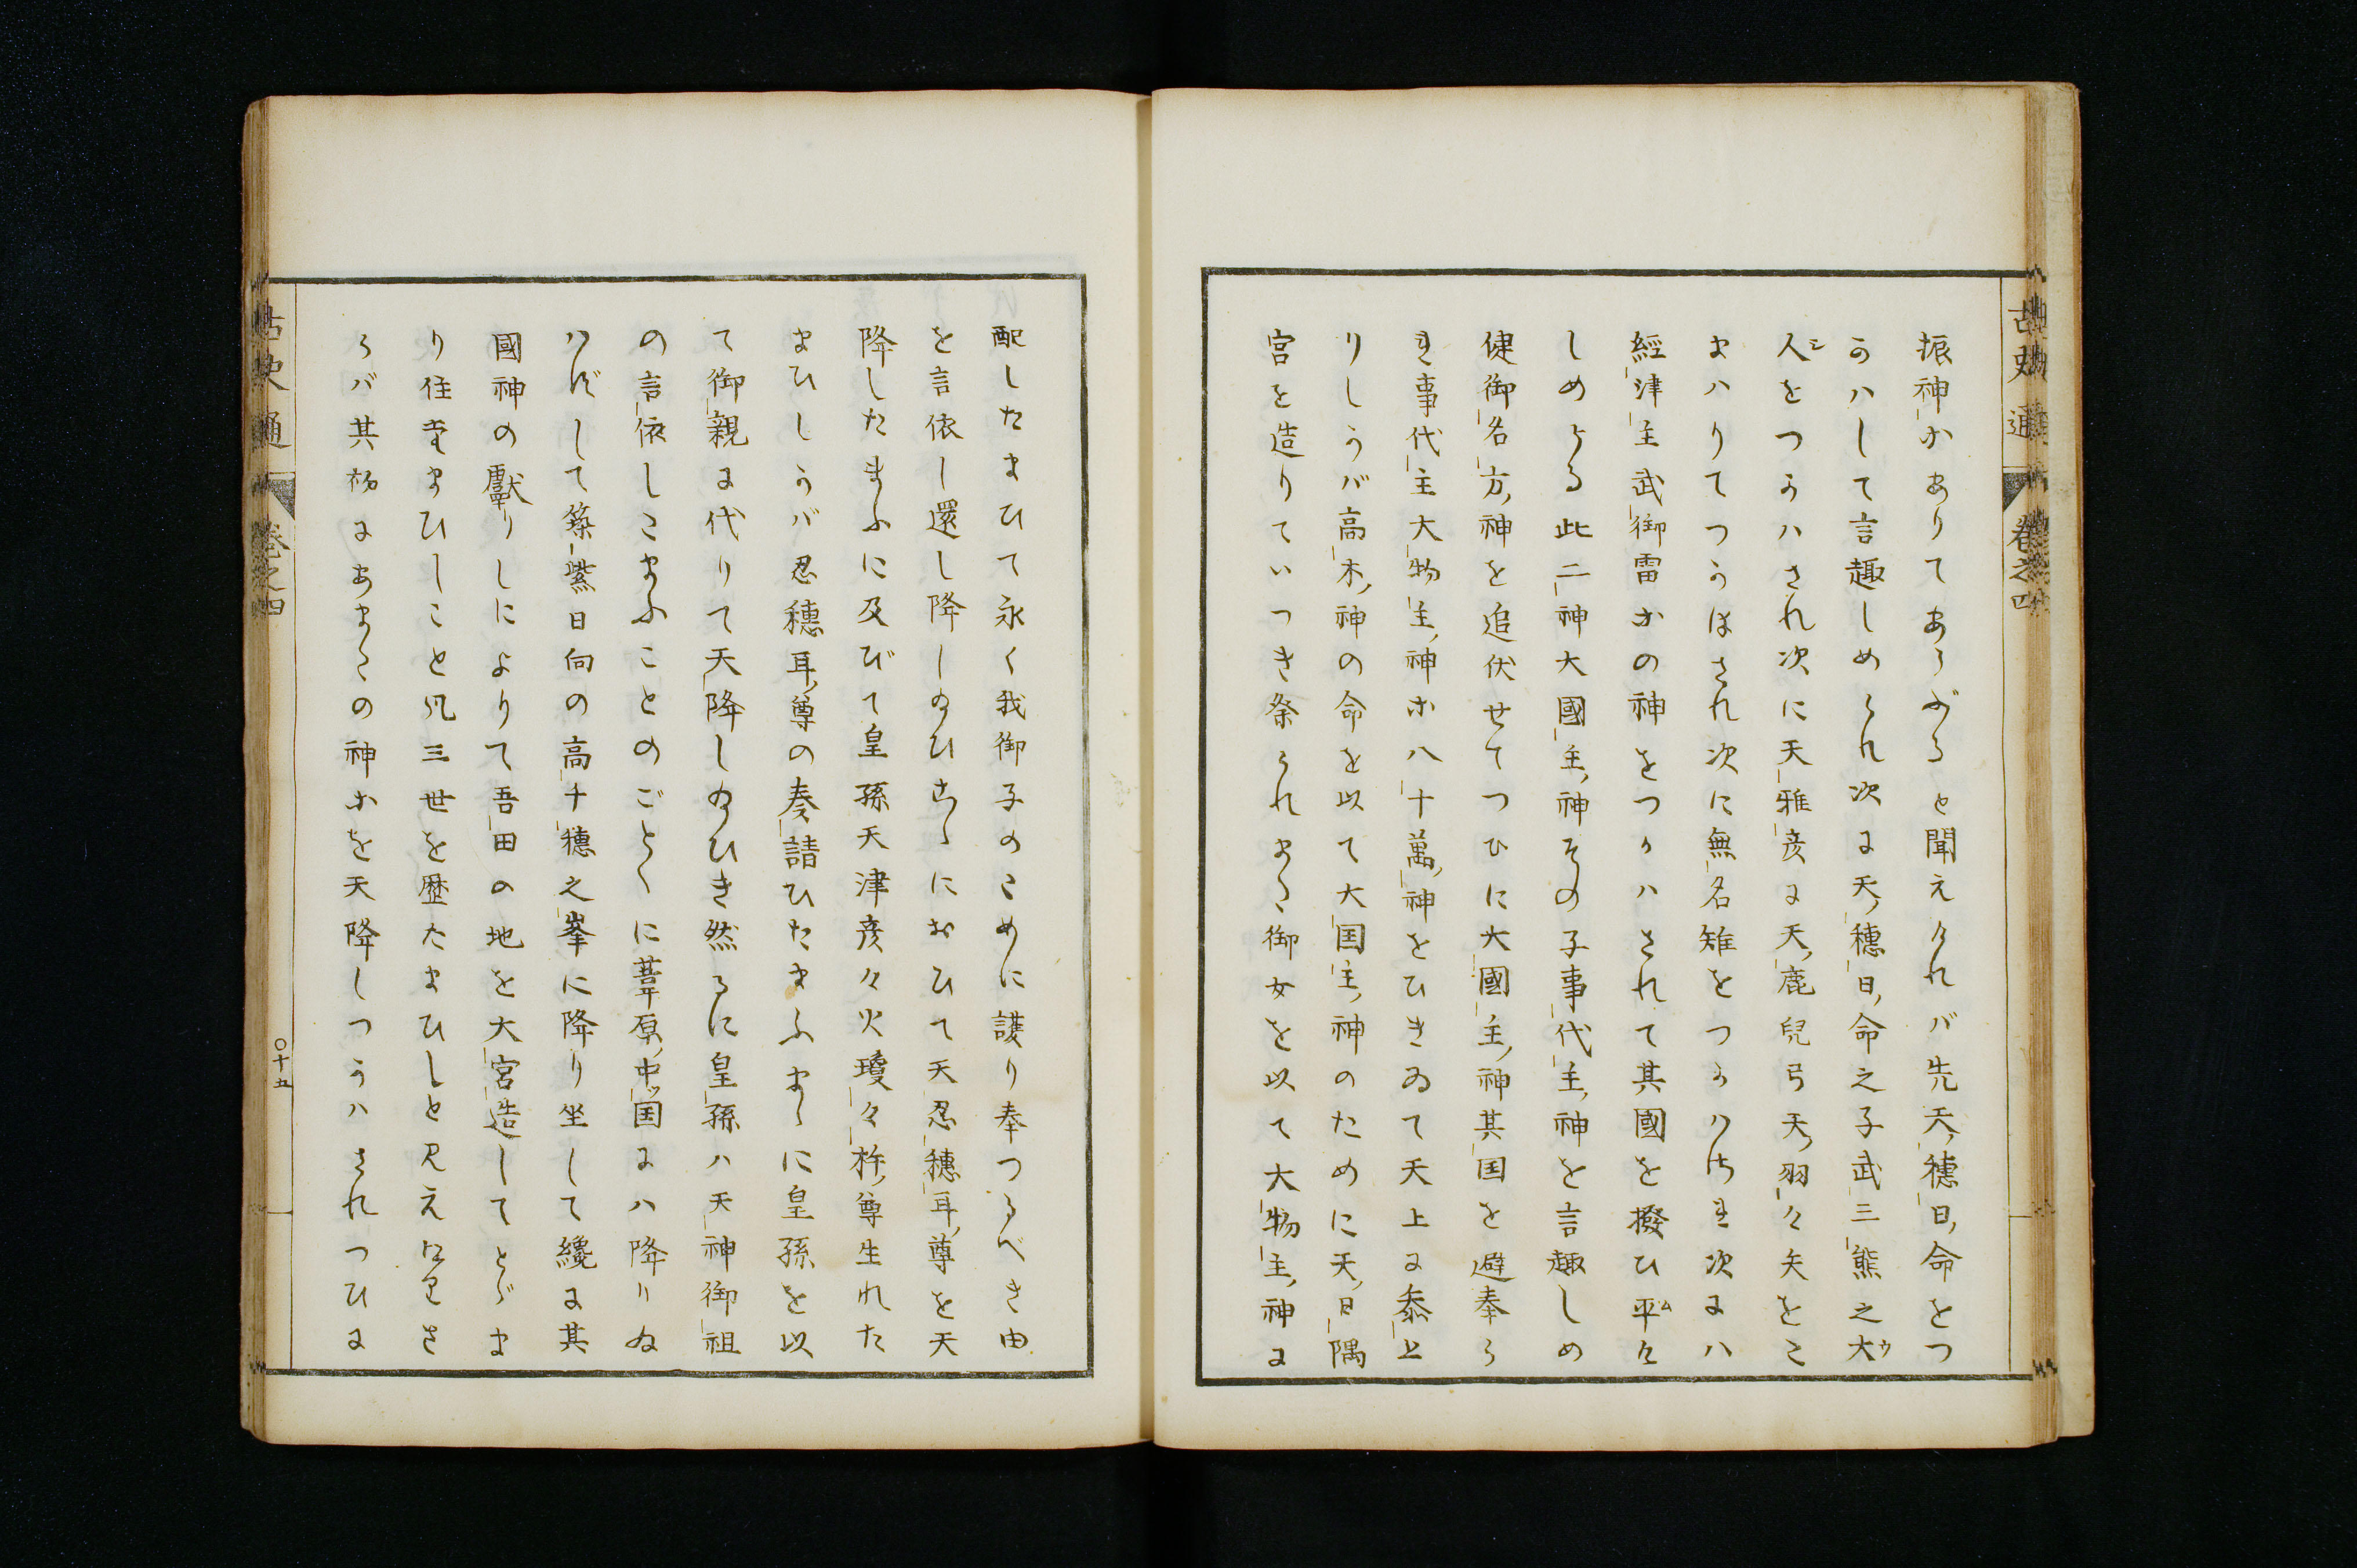 古史通 卷之四
振神等ありてあらぶると聞えければ先天穗日命をつ
かハして言趣しめられ次に天穗日命之子武三熊之大
人をつかハされ次に天雅彦に天鹿兒弓天羽々矢をこ
まハりてつかはされ次に無名雉をつかハされ次にハ
經津主武御雷等の神をつかハされて其國を撥ひ平け
しめらる此二神大國主神その子事代主神を言趣しめ
健御名方神を追伏せてつひに大國主神其国を避奉ら
れ事代主大物主神等八十萬神をひきゐて天上に參上
りしかバ高木神の命を以て大国主神のために天日隅
宮を造りていつき祭られまた御女を以て大物主神に
配したまひて永く我御子のために護り奉つるべき由
を言依し還し降し給ひこゝにおひて天忍穗耳尊を天
降したまふに及びて皇孫天津彦々火瓊々杵尊生れた
まひしかバ忍穗耳尊の奏請ひたまふまゝに皇孫を以
て御親に代りて天降し給ひき然るに皇孫ハ天神御祖
の言依したまふことのごとくに葦原中国にハ降りゐ
ハずして築紫日向の高千穗之峯に降り坐して纔に其
國神の獻りしによりて吾田の地を大宮造してとゞま
り住たまひしこと凡三世を歴たまひしと見えけりさ
らバ其初にあまたの神等を天降しつかハされつひに
古史通 卷之四
〇十五